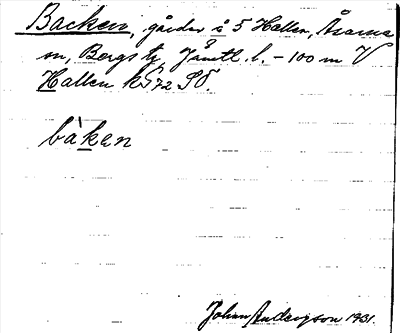 Backen, gårdar å 5 Hallen, Åsarne
sn, Bergs tg, Jämtl. l. – 100 m V
Hallen k 572 SV.
bàken
Johan Anderson 1931.